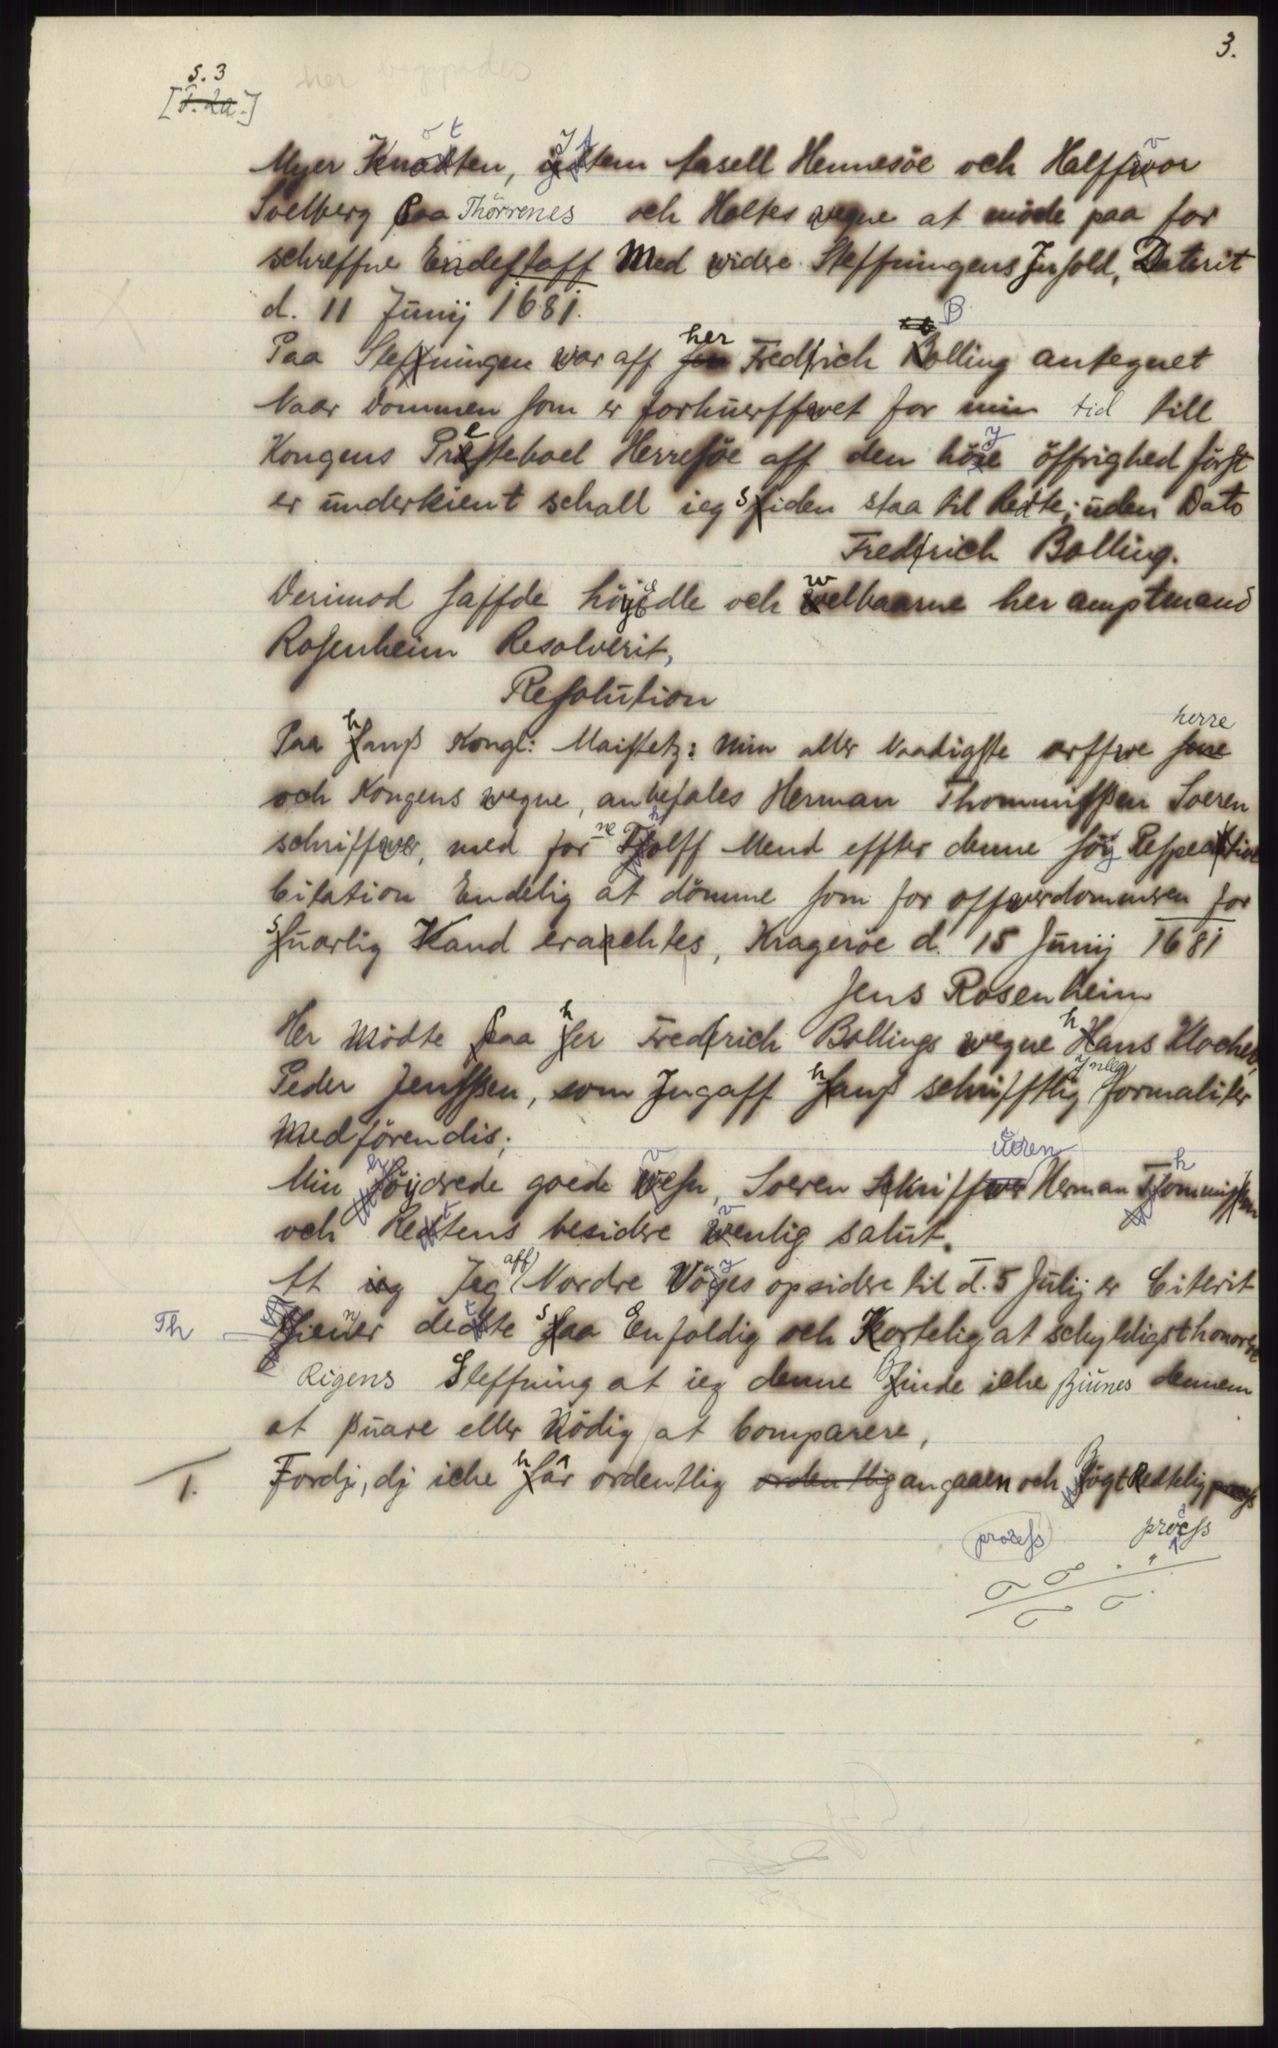 3.
S. 3
her
Myer Knotten, Jttem Assell Hennesöe och Halffvor
Solberg Paa Thörrenes och Holtes wegne at möde paa for
schreffne Endestaff Med widre Steffningens Jnhold, Daterit
d. 11 Junij 1681.
Paa Steffningen war aff her Fredrich Bolling antegnet
Naar Dommen som er forhuerffwet for min tid till
Kongens Presteboel Herresöe aff den höye öffrighed först
er underkient schall ieg siden staa til Rette, uden Dato
Fredrich Bolling.
Derimod haffde höyEdle och welbaarne her amptmand
Rosenheim Resolverit,
Resolution
Paa hanß Kongl: Maistetz: min aller Naadigste arffwe herre
och Kongens wegne, anbefales Herman Thommisßen Soeren
schriffwer, med for ne Tholff Mend effter denne höy Respective
Citation Endelig at dömme som for offwerdommeren for
suarlig Kand erachtes, Kragerøe d. 15 Junij 1681
Jens Rosenheim
Her Mödte Paa her Fredrich Bollings wegne hans Klocher,
Peder Jensßen, som Jngaff hanß schrifftlig Jnleg formaliter
Medförendis;
Min höyærede goede ven, Soeren Skrifueren Herman Thommisßen
och Rettens besidere venlig salut.
At Jeg aff Nordre Vöyes opsidere til d. 5 Julij er Citerit
Th
Thiener dette saa Enfoldig och Kortelig at schyldigst honorere
Rigens Steffning at ieg denne sinde iche Βiunes dennem
at ßuare eller Nödig at Comparere,
1. Fordj, dj iche har ordentlig angaaen och Bögt Rettelig process
process
process